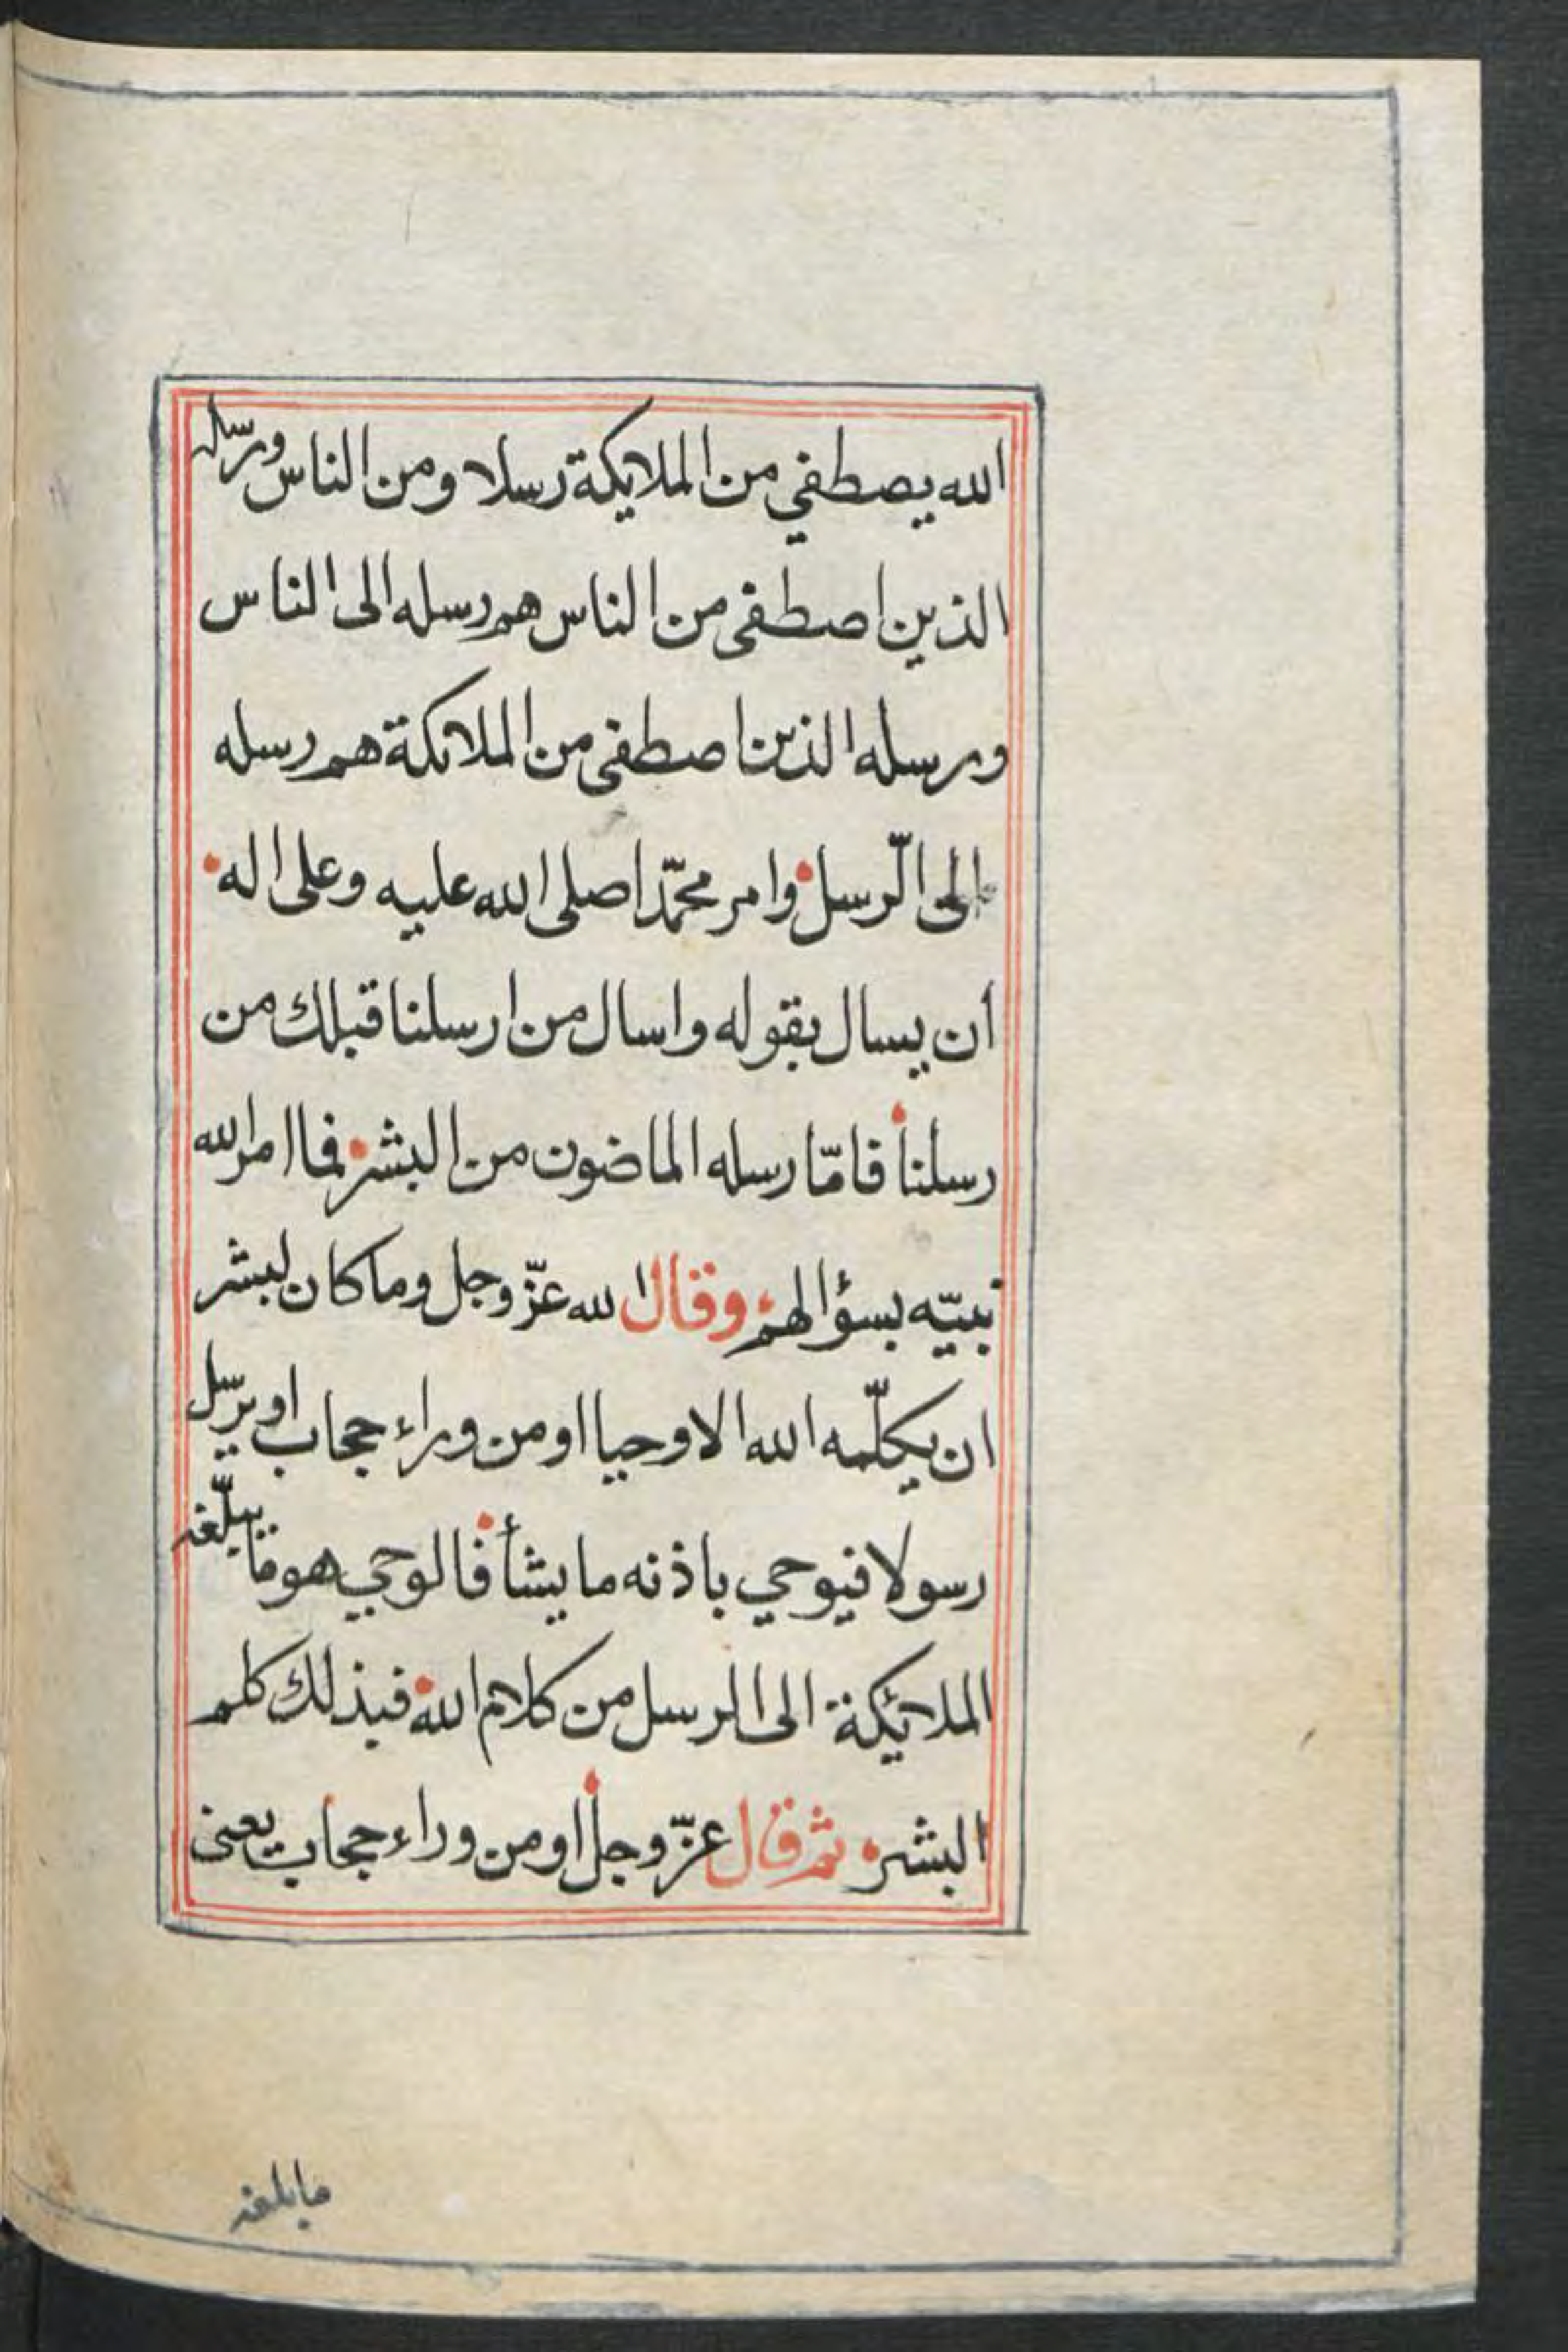 الله يصطفي من الملايكة رسلا ومن الناس ورسله
الذين اصطفى من الناس هم رسله الى الناس
ورسله الذين اصطفى من الملائكة هم رسله
الى الرّسل وامر محمّدا صلى الله عليه وعلى اله
أن يسال بقوله واسال من ارسلنا قبلك من
رسلنا فامّا رسله الماضون من البشر فما امر الله
نبيّه بسؤالهم وقال الله عزّ وجل وما كان لبشر
ان يكلّمه الله الا وحيا او من وراء حجاب او يرسل
رسولا فيوحي باذنه ما يشأ فالوحي هو ما يبلّغه
الملائكة الى الرسل من كلام الله فبذلك كلم
البشر ثم قال عزّ وجل او من وراء حجاب يعنى
ما بلغه